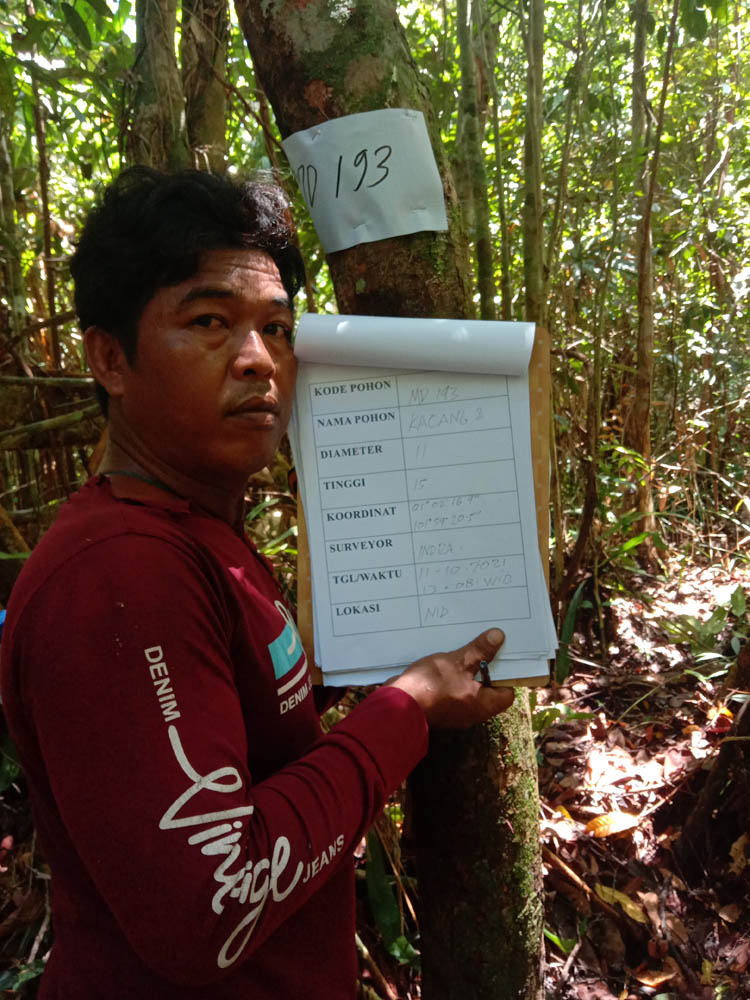 MD 193
KODE POHON MD 193
NAMA POHON KACANG 2
DIAMETER 11
TINGGI 15
KOORDINAT 01° 02' 16.9"
101° 59' 20.5"
SURVEYOR INDRA.
TGL/WAKTU 11-10-2021
13.08 WIB
LOKASI
DENIM
Vintage
JEANS
DENIM